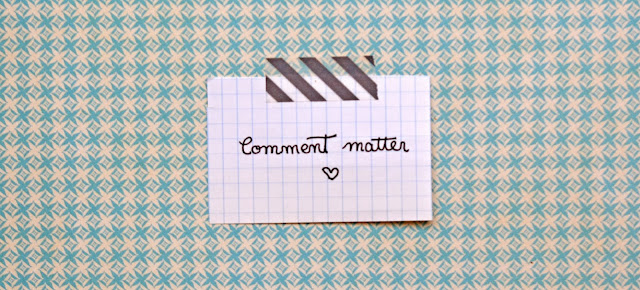 Comment matter